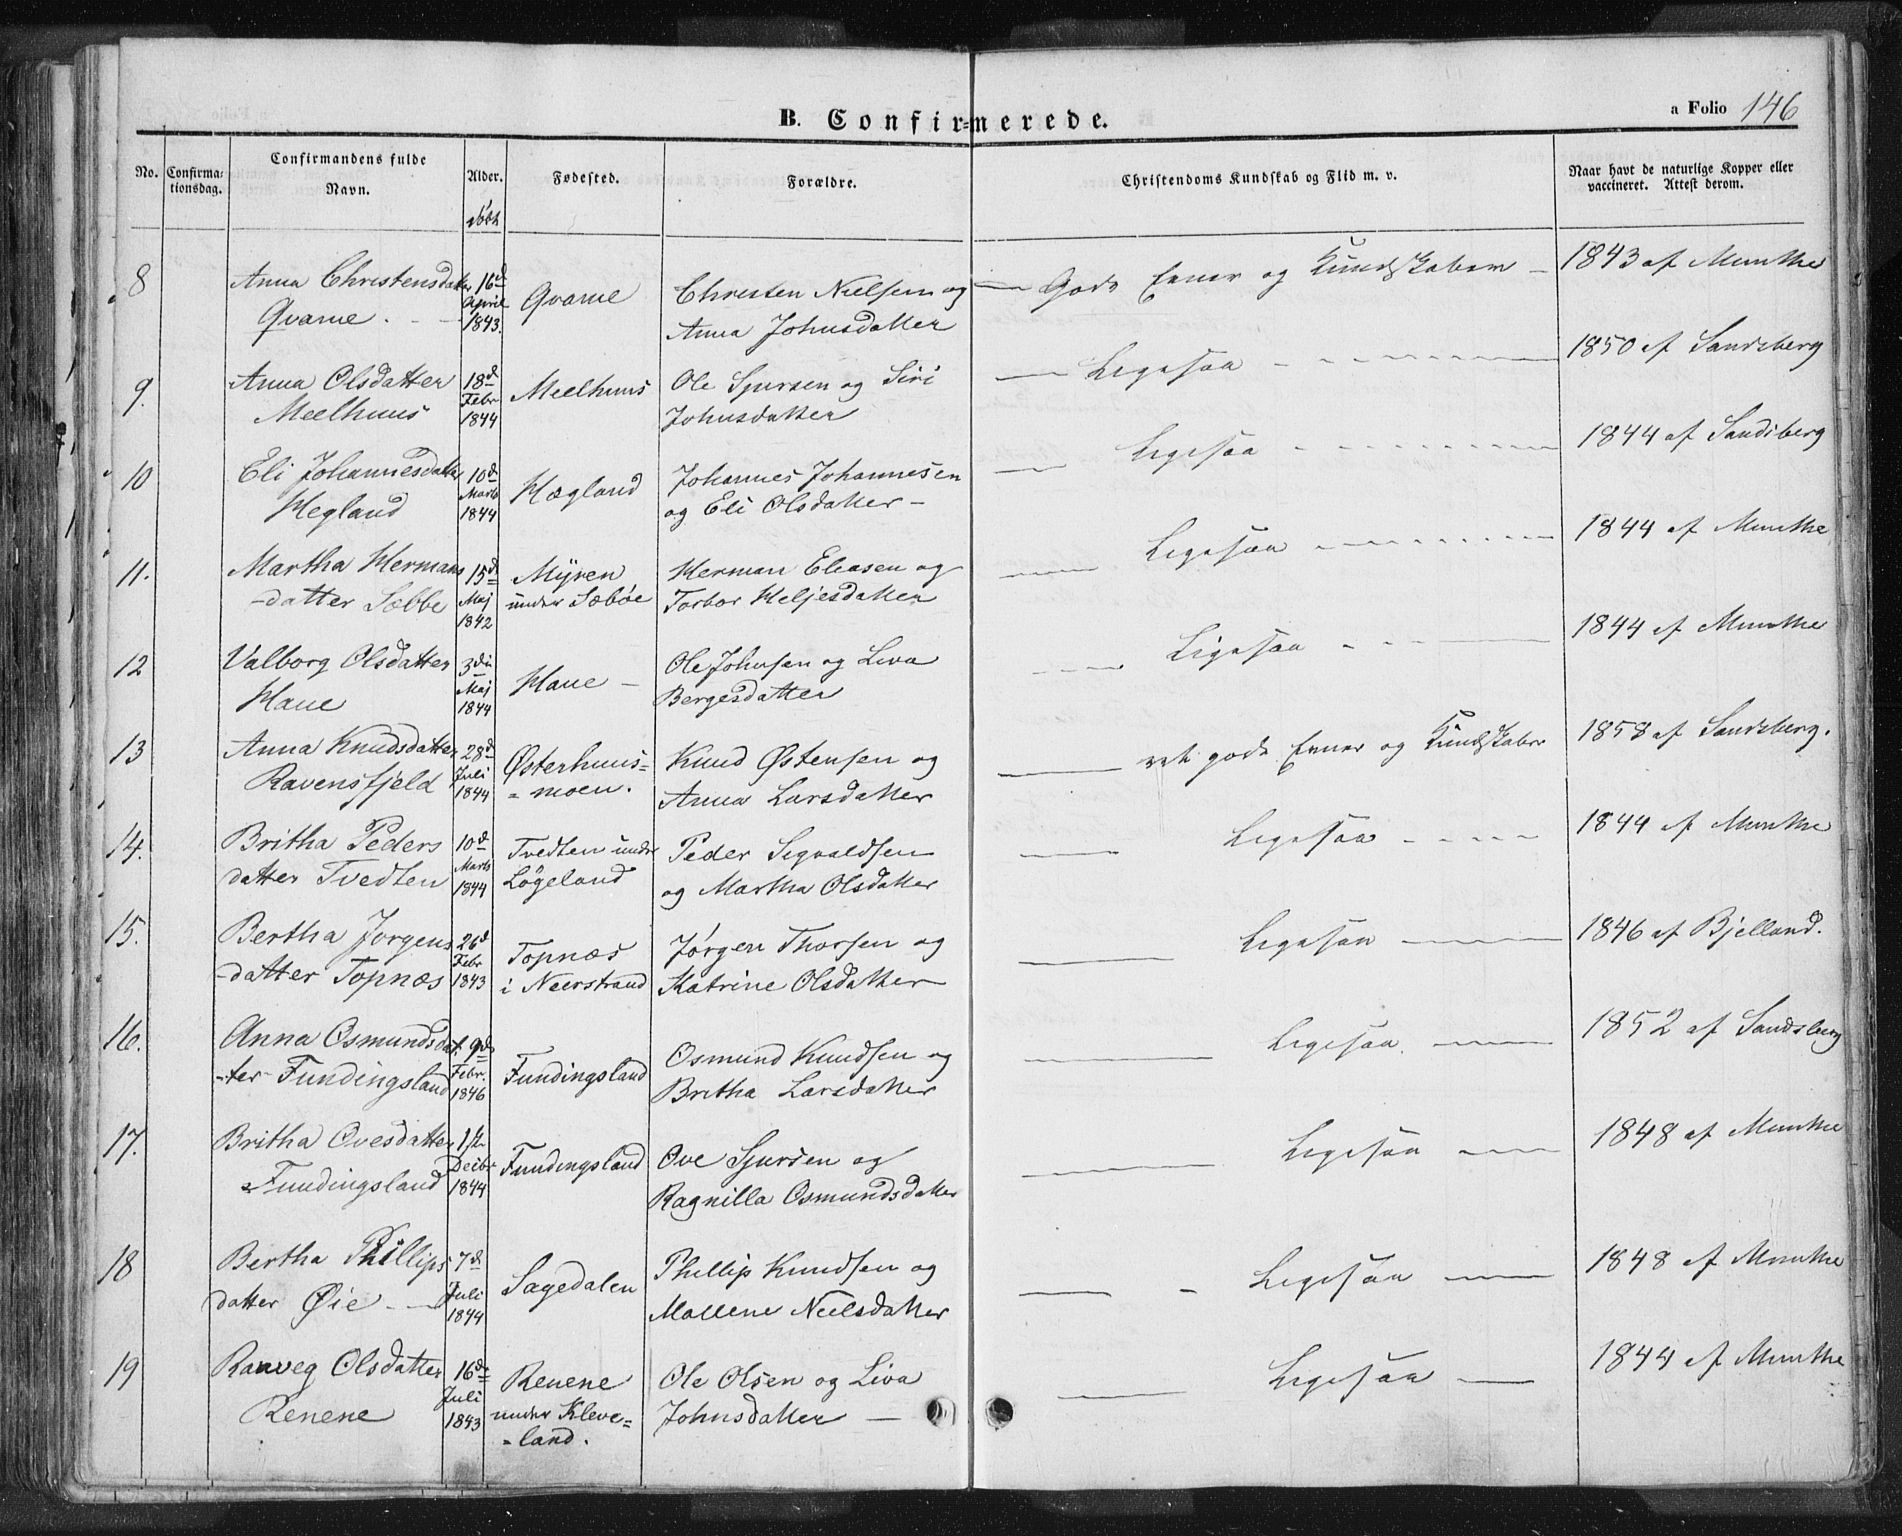 B. Confirmerede.
a Folio 146
No.
Confirma-
tionsdag.
Confirmandens fulde
Navn.
Alder.
Født
Fødested.
Forældre.
Christendoms Kundskab og Flid m. v.
Naar havt de naturlige Kopper eller
vaccineret. Attest derom.
8 Anna Christensdatter 16d Christen Nielsen og — Gode Evner og Kundskaber — 1843 af Munthe
Qvame. April 1843. Qvame Anna Johnsdatter
9. Anna Olsdatter 18d Meelhuus Ole Sjursen og Siri — Ligesaa 1850 af Sandsberg
Meelhuus Febr 1844 Johnsdatter
10 Eli Johannesdatter 10d Hægland Johannes Johannesen — Ligesaa 1844 af Sandsberg
Hegland Marts 1844 og Eli Olsdatter —
11. Martha Hermans 15d Myren Herman Eleasen og — Ligesaa 1844 af Munthe
-datter Sæbbe Maj 1842 under Sæbøe Torbor Heljesdatter
12 Valborg Olsdatter 3die Hane — Ole Johnsen og Liva — Ligesaa 1844 af Munthe
Hane Maj 1844 Bergesdatter
13 Anna Knudsdatter 28d Østerhuus= Knud Østensen og — ret gode Evner og Kundskaber 1858 af Sandsberg.
Ravensfjeld Juli 1844 =moen. Anna Larsdatter
14. Britha Peders 10d Tvedten under Peder Sigvaldsen — Ligesaa 1844 af Munthe
datter Tvedten Marts 1844 Løgeland og Martha Olsdatter
15. Bertha Jørgens 26d Topnæs Jørgen Thorsen og — Ligesaa — 1846 af Bjelland.
-datter Topnæs Febr 1843 i Neerstrand Katrine Olsdatter
16. Anna Osmundsdat 9de Fundingsland Osmund Knudsen og — Ligesaa — 1852 af Sandsberg
-ter Fundingsland Febr. 1846 Britha Larsdatter
17. Britha Ovesdatter 1ste Fundingsland Ove Sjursen og — Ligesaa — 1848 af Munthe
Fundingsland Decbr 1844 Ragnilla Osmundsdatter
18 Bertha Phillips 7d Sagedalen Phillip Knudsen og — Ligesaa — 1848 af Munthe
datter Øie — Juli 1844 Mallene Neelsdatter
19 Ranveg Olsdatter 16de Renene Ole Olsen og Liva — Ligesaa — 1844 af Munthe
Renene Juli 1843 under Kleve= Johnsdatter —
=land.